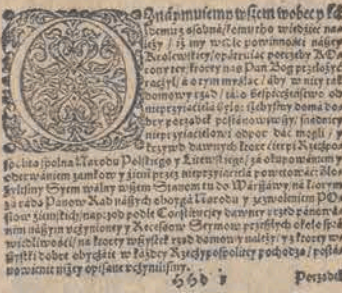 OZnáymuiemy wszem wobec y káż
demu z osobná / komu tho wiedzieć na
leży / iż my wedle powinnośći nászey
Krolewskiey / opátruiąc potrzeby KO
rony tey, ktorey nas Pan Bog przełożyć
raczył / á o tym myśląc / áby w niey rząd
domowy rząd / táko Bespieczeństwo od
nieprzyiaćielá było: żebyśmy domá do
bry porządek postánowiwszy / snádniey
nieprzyiaćielowi odpor dáć mogli / y
krzywd dawnych ktore ćierpi Rzeczpo
spolita spolna Narodu Polskiego y Litewskiego / zá okupowániem y
oderwániem zamkow y źiem przez nieprzyiaćielá powetowáć: Złoż
yliśmy Syem walny wszem Stanom tu do Wárszáwy / ná ktorym
zá rádą Pánow Rad nászych oboygá Narodu y zezwoleniem PO
słow źiemskich / naprzod podle Constituciey dawney przed pánowá
nim nászym vczynioney y Recessow Seymow przeszłych około sprá
wiedliwośći / ná ktorey wszystek rząd domowy należy / y z ktorey w
szystki dobre obyczáie w káżdey Rzeczypospolitey pochodzą / postá
nowienie niżey opisáne vczyniliśmy.
Hhh ij Porządek